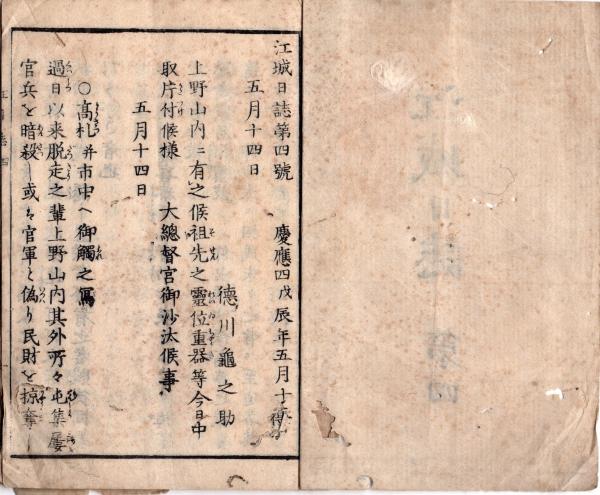 江城日誌第四號 慶應四戊辰年五月十
五月十四日
德川龜之助
上野山内ニ有之候祖先之靈位重器等今日中
取片付候様 大總督官御沙汰候事
五月十四日
○高札并市中ヘ御觸之寫
過日以来脱走之輩上野山内其外所々屯集屡
官兵を暗殺し或ハ官軍と偽り民財を掠奪し
江城日誌 第四